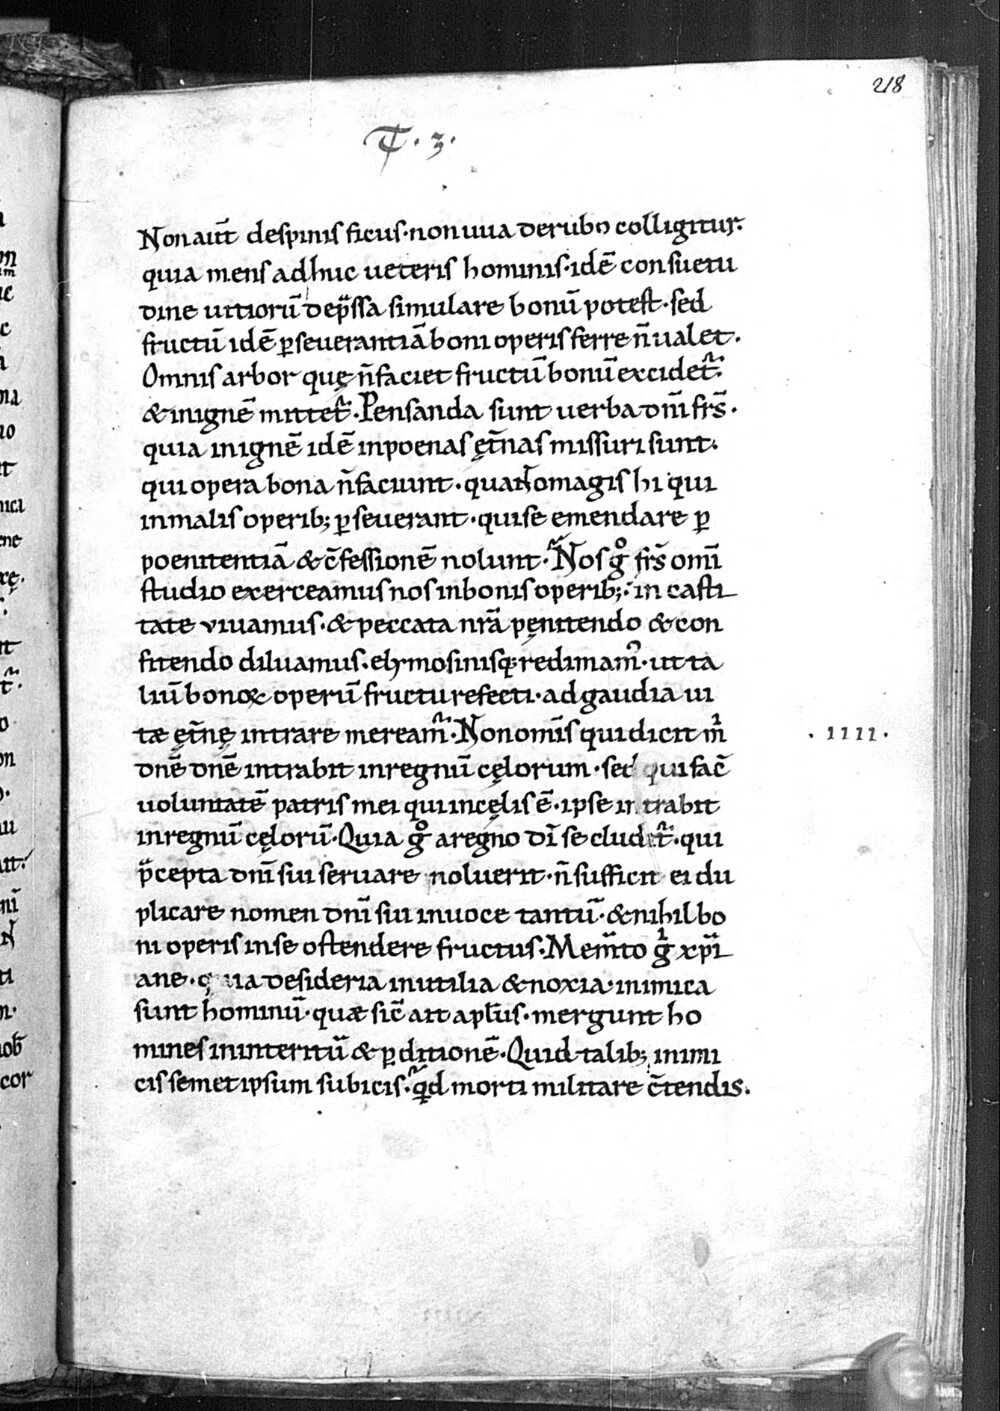 218
T . 3 .
Non aut̄ de spinis ficus · non uua de rubo colligitur ·
quia mens adhuc ueteris hominis · idē consuetu
dine uitiorū dep̄ssa simulare bonū potest · sed
fructū idē ꝑseuerantiā boni operis ferre n̄ ualet ·
Omnis arbor quę n̄ faciet fructū bonū excidet᷑ ·
& in ignē mittet᷑ · Pensanda sunt uerba dn̄i frs̄ ·
quia in ignē idē in poenas ęt̄nas missuri sunt ·
qui opera bona n̄ faciunt · quanto magis hi qui
in malis operib; ꝑseuerant · qui se emendare ꝑ
poenitentiā & c̄fessionē nolunt · Nos gͦ frs̄ omī
studio exerceamus nos in bonis operib; · in casti
tate uiuamus · & peccata nrā pęnitendo & con
fitendo diluamus · elymosinisq; redimam᷒ · ut ta
liū bonoꝝ operū fructu refecti · ad gaudia ui
tæ ęt̄nę intrare meream᷑ · Non omīs qui dicit m̍
dn̄e dn̄e intrabit in regnū cęlorum · sed qui fac̄
uoluntatē patris mei qui in cęlis ē · ipse intrabit
in regnū cęlorū · Quia gͦ a regno dī secludit᷑ · qui
p̄cepta dn̄i sui seruare noluerit · n̄ sufficit ei du
plicare nomen dn̄i sui in uoce tantū · & nihil bo
ni operis in se ostendere fructus · Mem̄to g̍ xp̄i
ane · quia desideria inutilia & noxia · inimica
sunt hominū · quæ sic̄ ait apl̄us · mergunt ho
mines in interitū & ꝑditionē · Quid talib; inimi
cis semetipsum subicis · qͥd morti militare c̄tendis ·
· 1111 ·